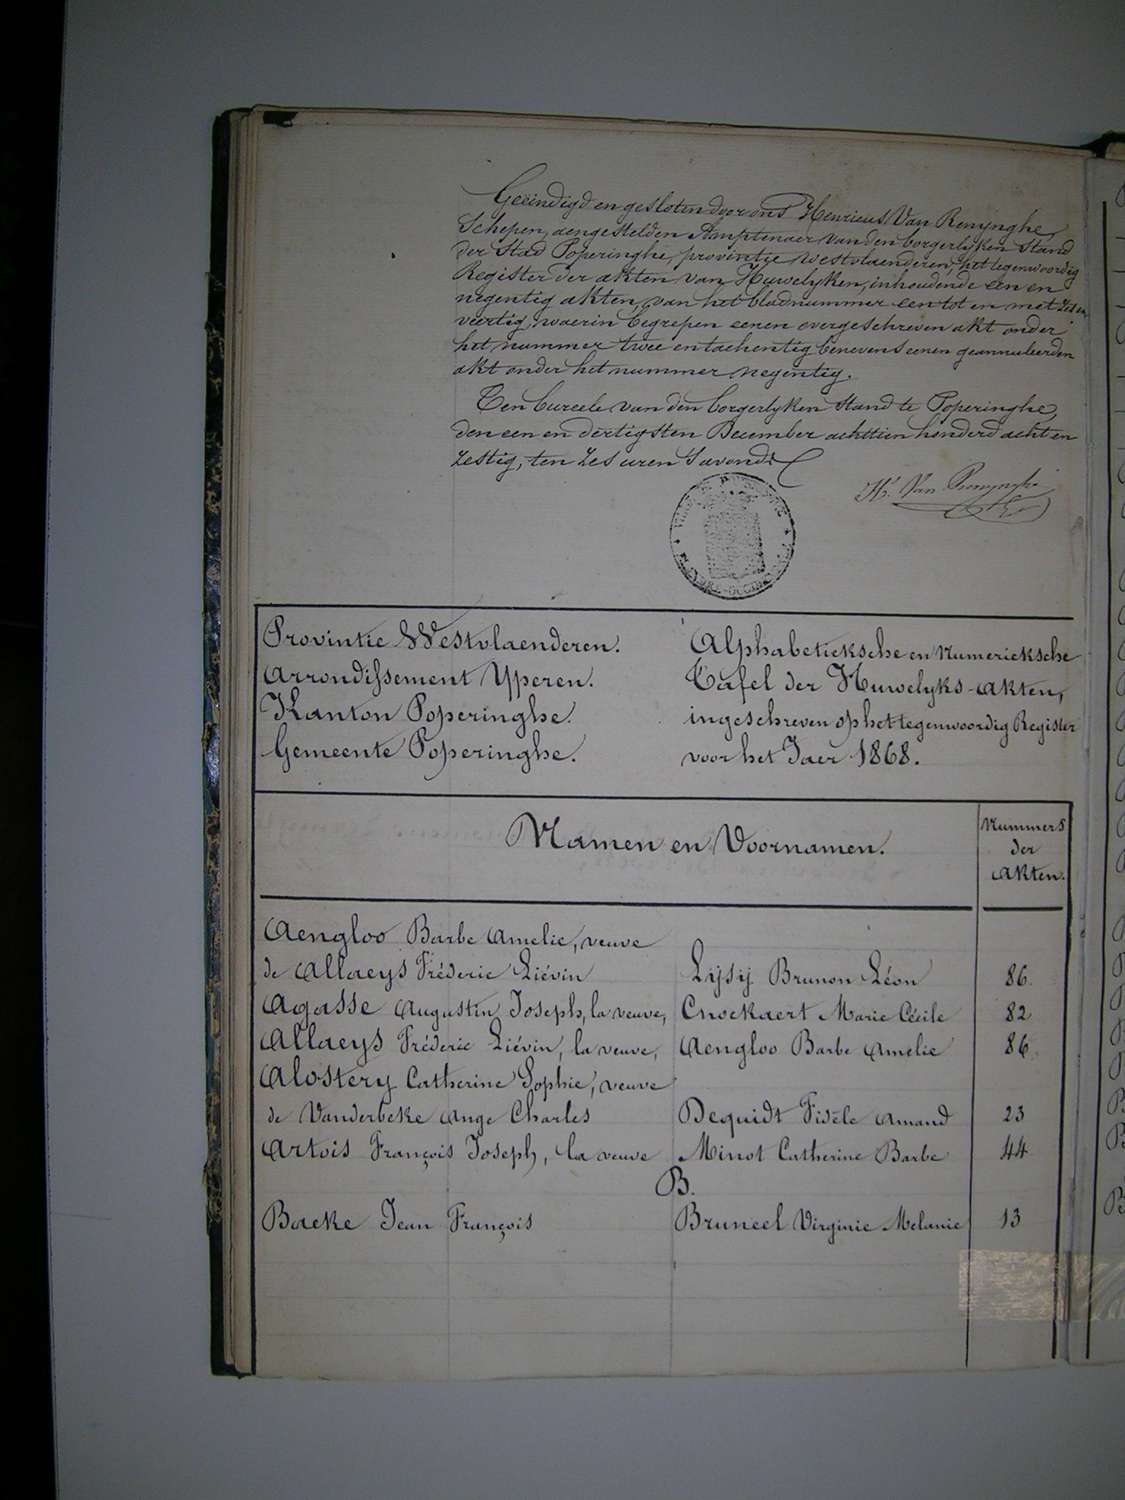 Geëindigd en gesloten door ons Henricus Van Renynghe,
Schepen, aengestelden Amptenaer van den borgerlyken Stand
der Stad Poperinghe, provintie Westvlaenderen, het tegenwoordig
Register der akten van Huwelyken, inhoudende een en
negentig akten, van het bladnummer een tot en met zes en
veertig, waerin begrepen eenen overgeschreven akt onder
het nummer twee en tachentig benevens eenen geannuleerden
akt onder het nummer negentig.
Ten bureele van den borgerlyken Stand te Poperinghe,
den een en dertigsten December achttien honderd acht en
zestig, ten zes uren s'avonds
Hi Van Renynghe
Provintie Westvlaenderen.
Arrondissement Yperen.
Kanton Poperinghe.
Gemeente Poperinghe.
Alphabetieksche en Numerieksche
Tafel der Huwelyks-Akten,
ingeschreven op het tegenwoordig Register
voor het Jaer 1868.
Namen en Voornamen.
Nummers
der
Akten.
Aengloo Barbe Amelie, veuve
de Allaeys Fréderic Liévin Lysy Brunon Léon 86.
Agasse Augustin Joseph, la veuve, Cnockaert Marie Cécile 82
Allaeys Fréderic Liévin, la veuve, Aengloo Barbe Amelie 86.
Alostery Catherine Sophie, veuve
de Vanderbeke Ange Charles Dequidt Fidèle Amand 23
Artois François Joseph, la veuve Minot Catherine Barbe 44
B.
Backe Jean François Bruneel Virginie Melanie 13